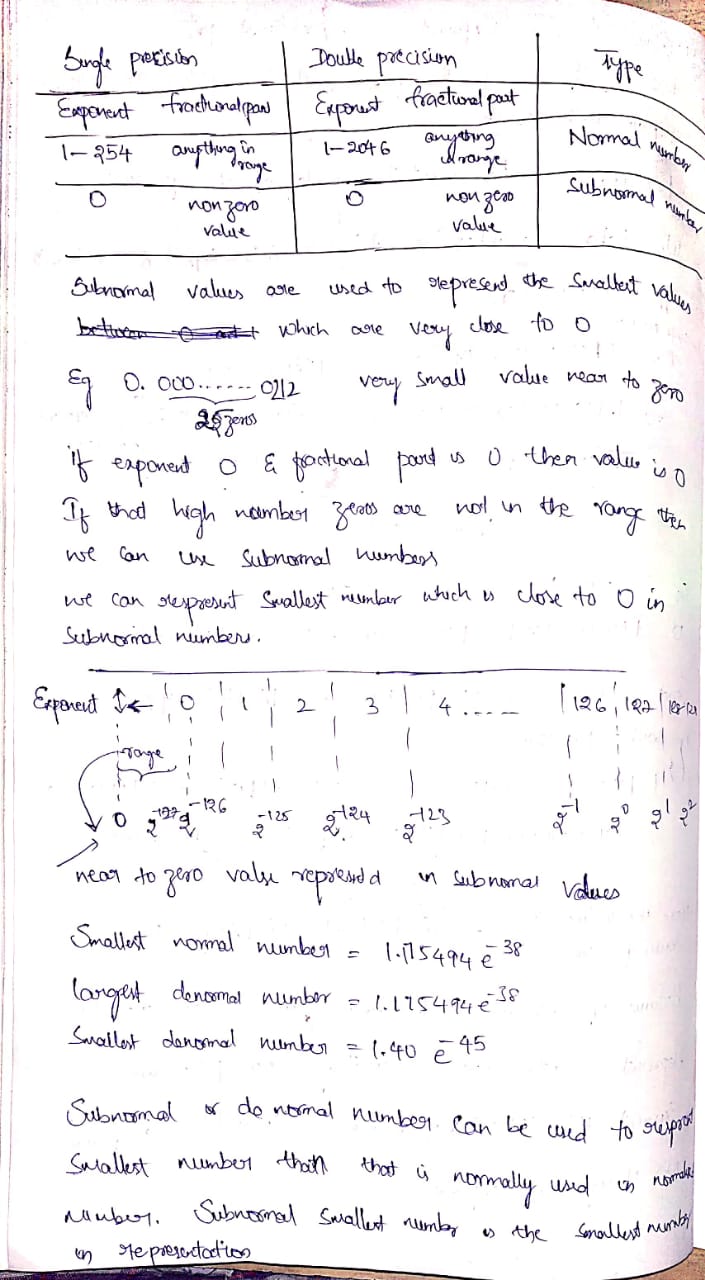 Single precision Double précision Type
Exponent fractional part Exponent fractional part
1-254 anything in range 1-2046 anything range Normal number
0 nonzero value 0 nonzero value Subnormal number
Subnormal values are used to represent the Smallest values
which are very close to 0
Eg 0.000.......0212 very small value near to zero
zeros
if exponent 0 & fractional part is 0 then value is 0
If that high number zeros are not in the range then
we can use Subnormal numbers
we can respresent Smallest number which is close to 0 in
Subnormal numbers.
Exponent 0 1 2 3 4..... 126 127 128
range
0 2^-127 2^-126 2^-125 2^-124 2^-123 2^-1 2^0 2^1 2^2
near to zero value in Subnormal Values
Smallest normal number = 1.175494 e^-38
largest denormal number = 1.175494 e^-38
Smallest denormal number = 1.40 e^-45
Subnormal or denormal number can be used to
Smallest number than that is normally used in
number. Subnormal Smallest number is the Smallest number
in representation